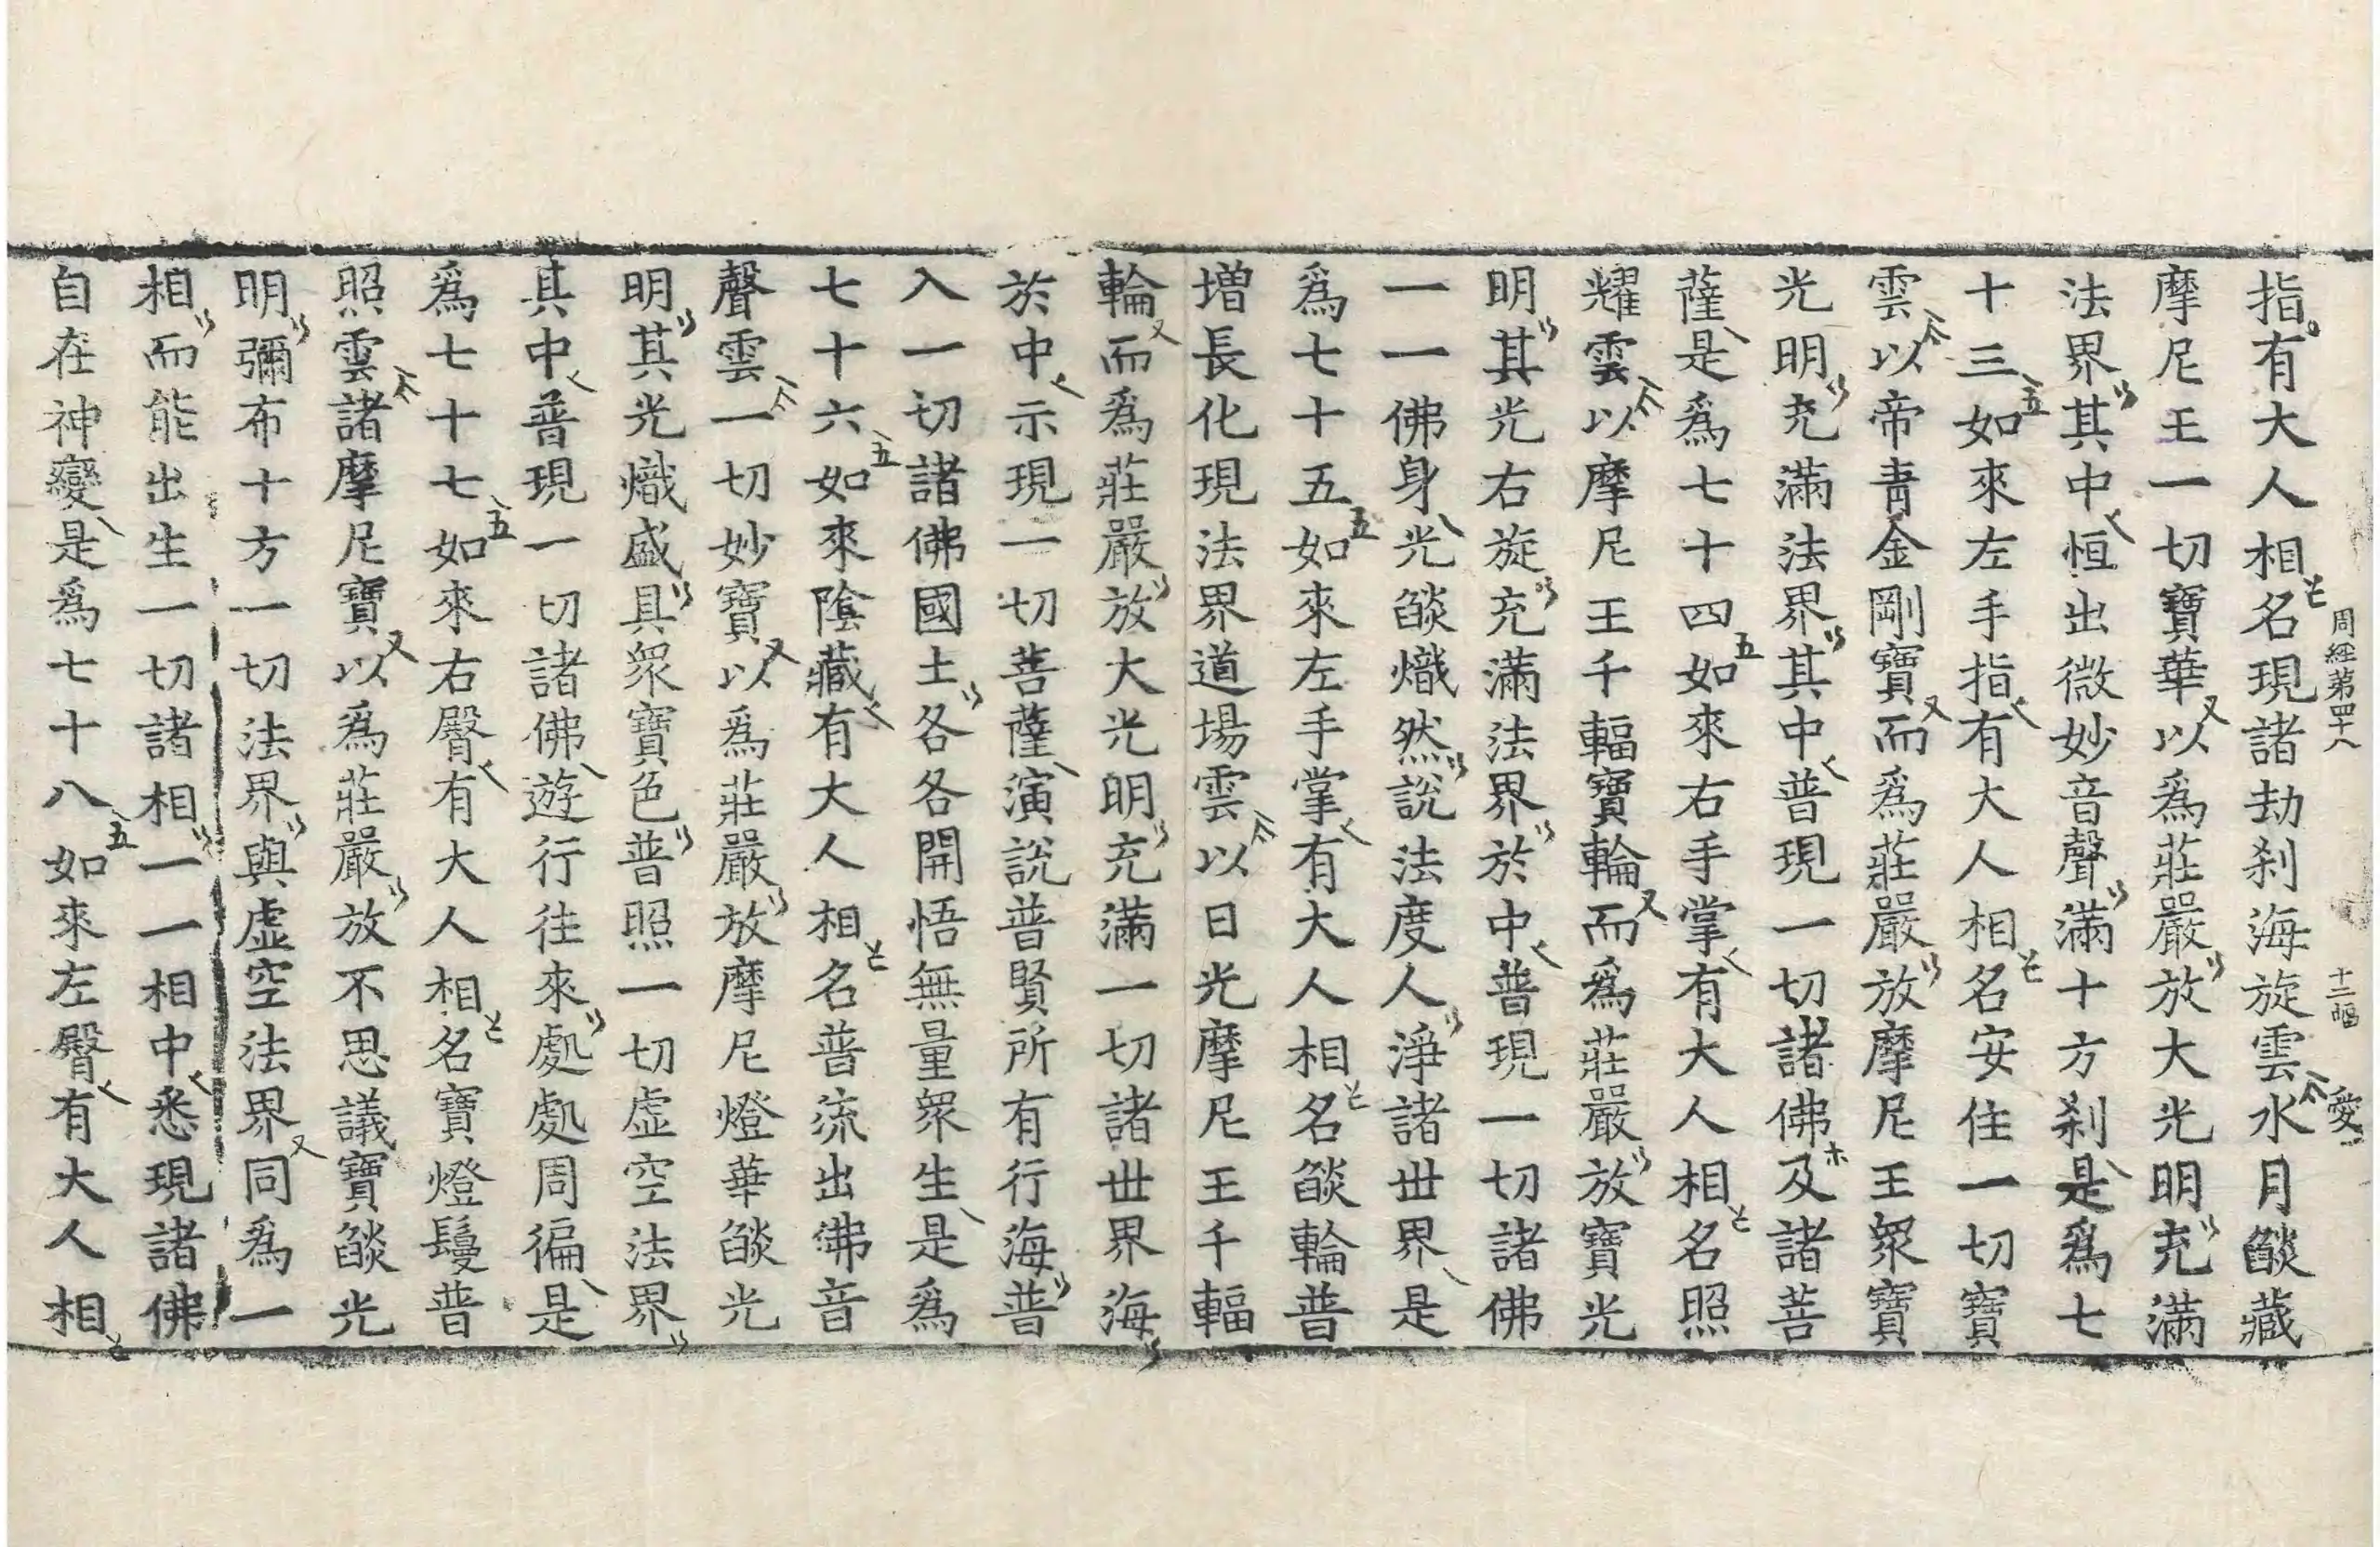 周經第四十八　十二幅　愛
指有大人相名現諸劫刹海旋雲水月燄藏
摩尼王一切寶華以爲莊嚴放大光明充滿
法界其中恒出微妙音聲滿十方刹是爲七
十三如來左手指有大人相名安住一切寶
雲以帝青金剛寶而爲莊嚴放摩尼王衆寶
光明充滿法界其中普現一切諸佛及諸菩
薩是爲七十四如來右手掌有大人相名照
耀雲以摩尼王千輻寶輪而爲莊嚴放寶光
明其光右旋充滿法界於中普現一切諸佛
一一佛身光燄熾然說法度人淨諸世界是
爲七十五如來左手掌有大人相名燄輪普
增長化現法界道場雲以日光摩尼王千輻
輪而爲莊嚴放大光明充滿一切諸世界海
於中示現一切菩薩演說普賢所有行海普
入一切諸佛國土各各開悟無量衆生是爲
七十六如來陰藏有大人相名普流出佛音
聲雲一切妙寶以爲莊嚴放摩尼燈華燄光
明其光熾盛具衆寶色普照一切虛空法界
其中普現一切諸佛遊行往來處處周徧是
爲七十七如來右臀有大人相名寶燈鬘普
照雲諸摩尼寶以爲莊嚴放不思議寶燄光
明彌布十方一切法界與虛空法界同爲一
相而能出生一切諸相一一相中悉現諸佛
自在神變是爲七十八如來左臀有大人相